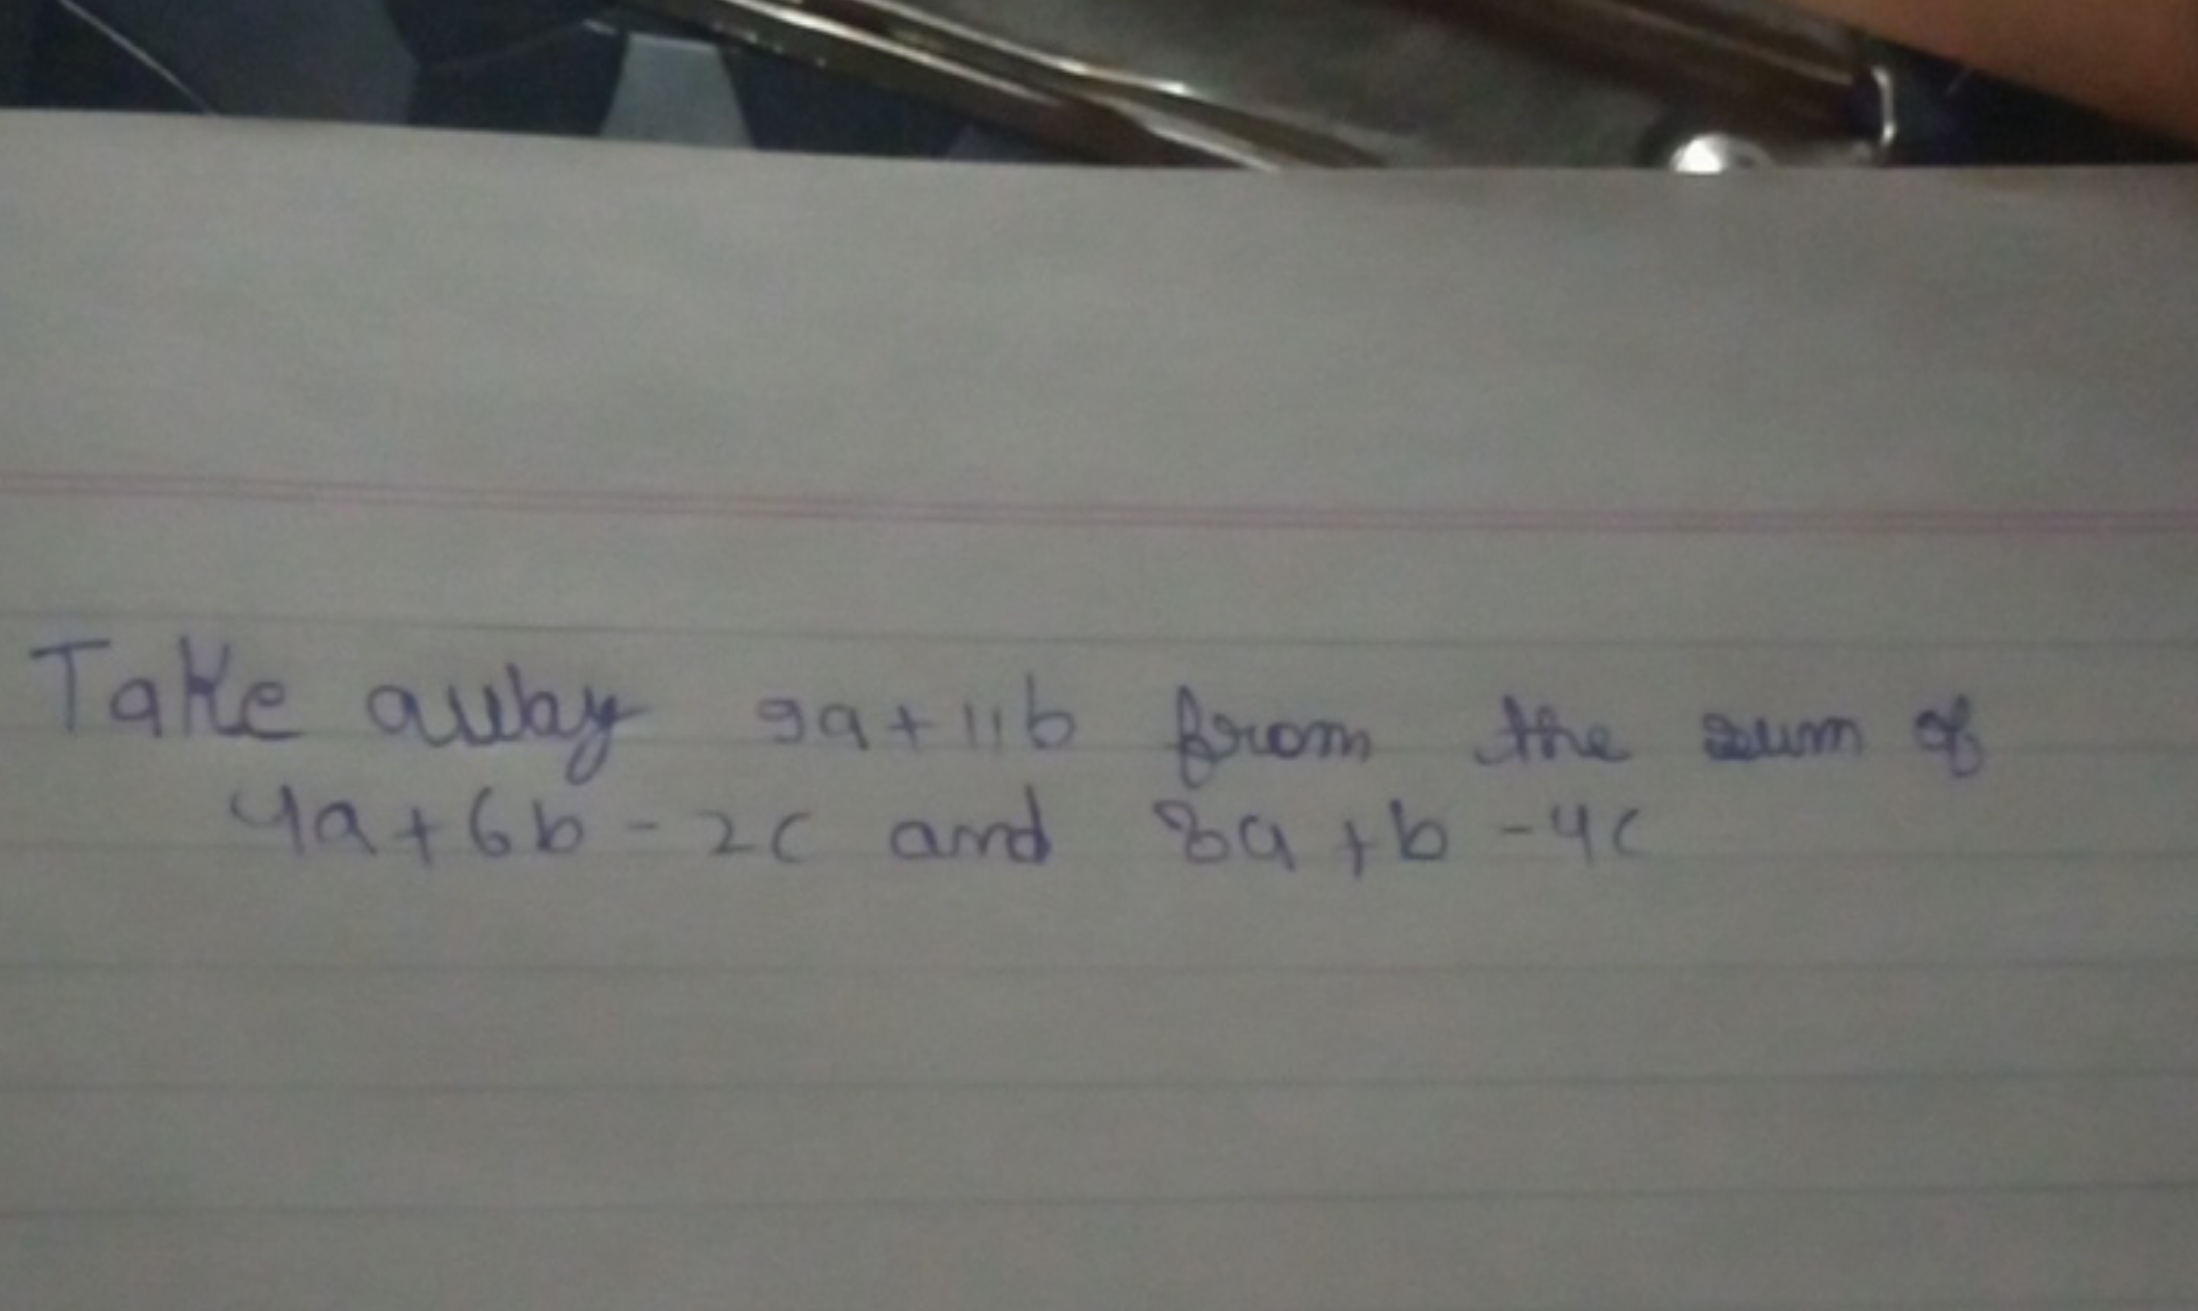 Take away 9a+11b from the sum of
4a+6b-2c and 8a+b-4c